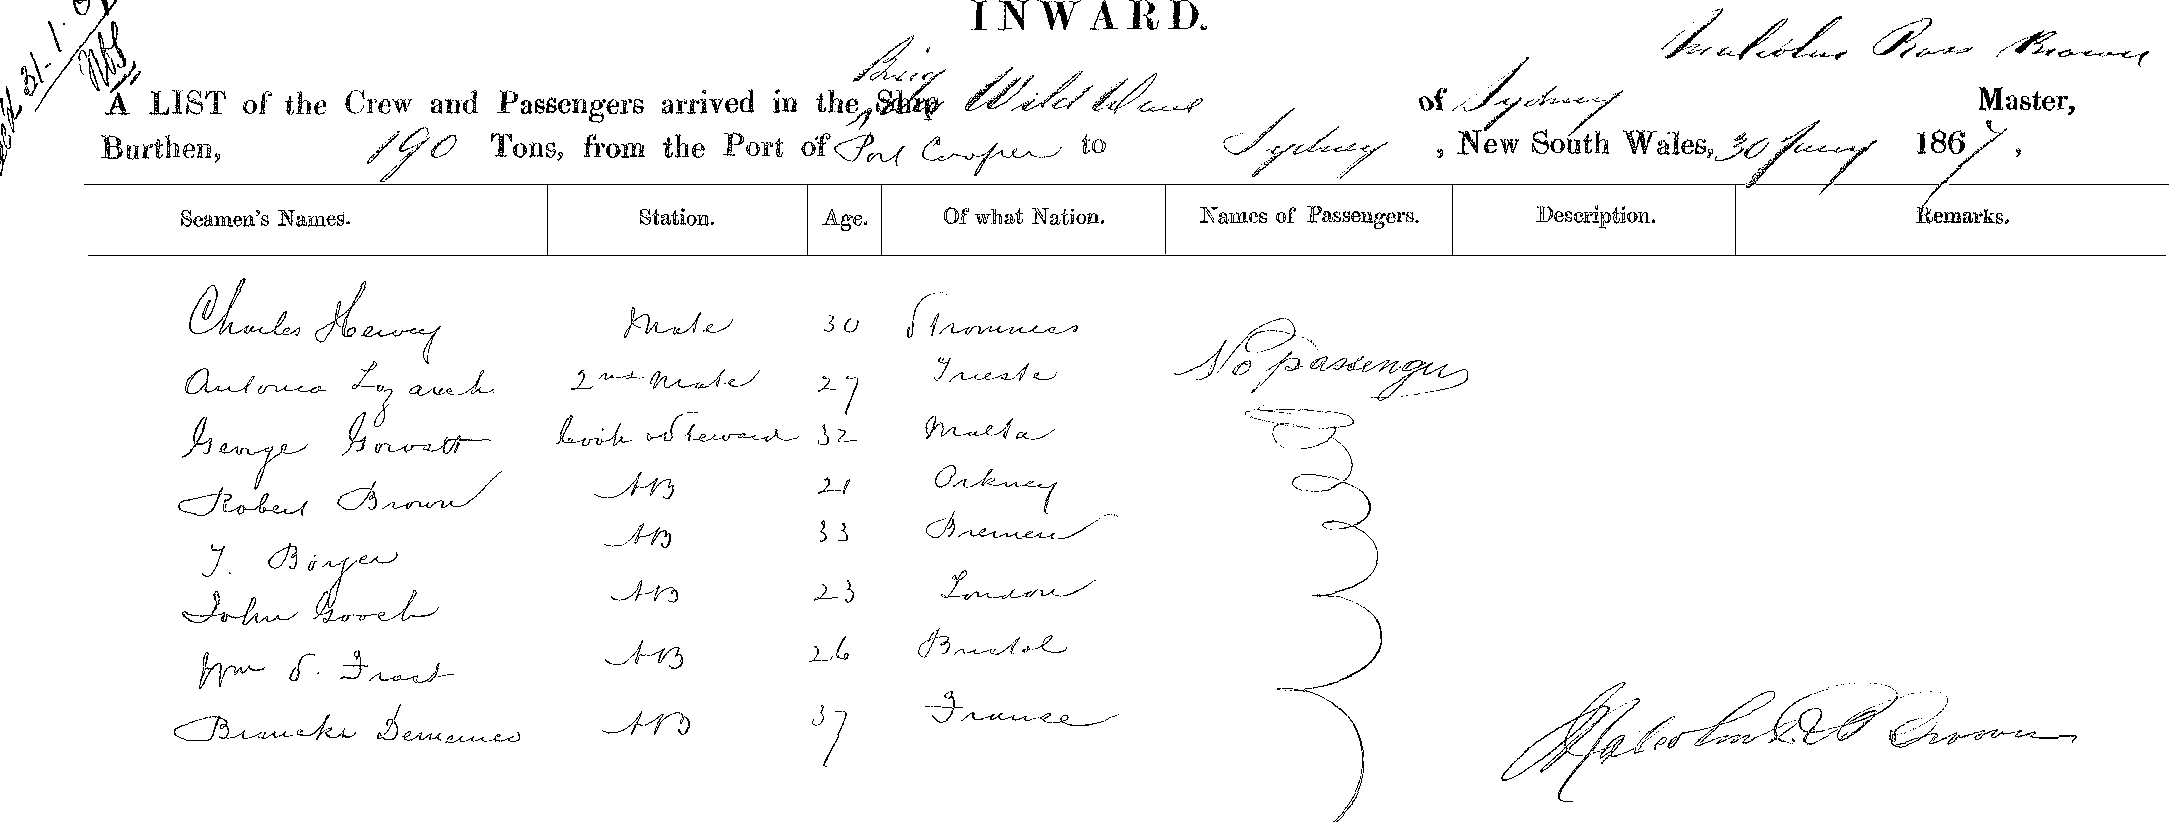 INWARD.
31-1.
Ross Brown
Brig
A LIST of the Crew and Passengers arrived in the Ship Wild Wave of Sydney Master,
Burthen, 190 Tons, from the Port of Port Cooper to Sydney, New South Wales, 30 Jany 1867,
Seamen's Names. Station. Age. Of what Nation. Names of Passengers. Description. Remarks.
Charles Hervey Mate 30 Stromness
No passengers
Antonio 2nd Mate 27 Trieste
George Cook & Steward 32 Malta
Robert Brown AB 21 Orkney
AB 33 Bremen
John Gooch AB 23 London
Wm S. Frost AB 26 Bristol
AB 37 France
Malcolm R Brown